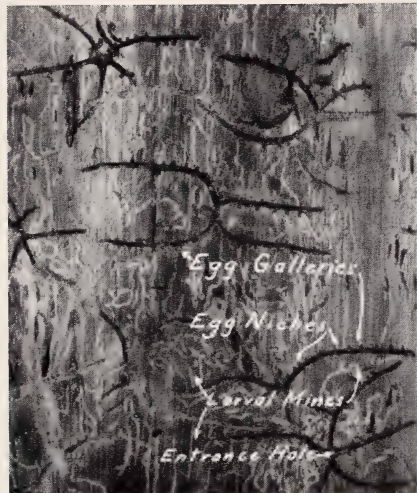 Egg Galleries
Egg Niches
Larval Mines
Entrance Hole